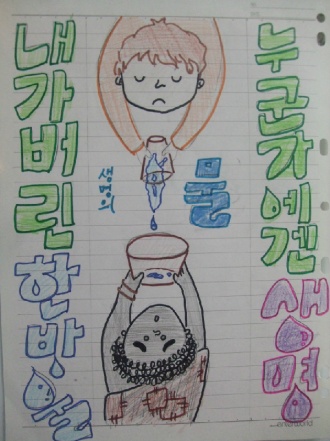 내가버린한방울
생명의
물
누군가에겐생명